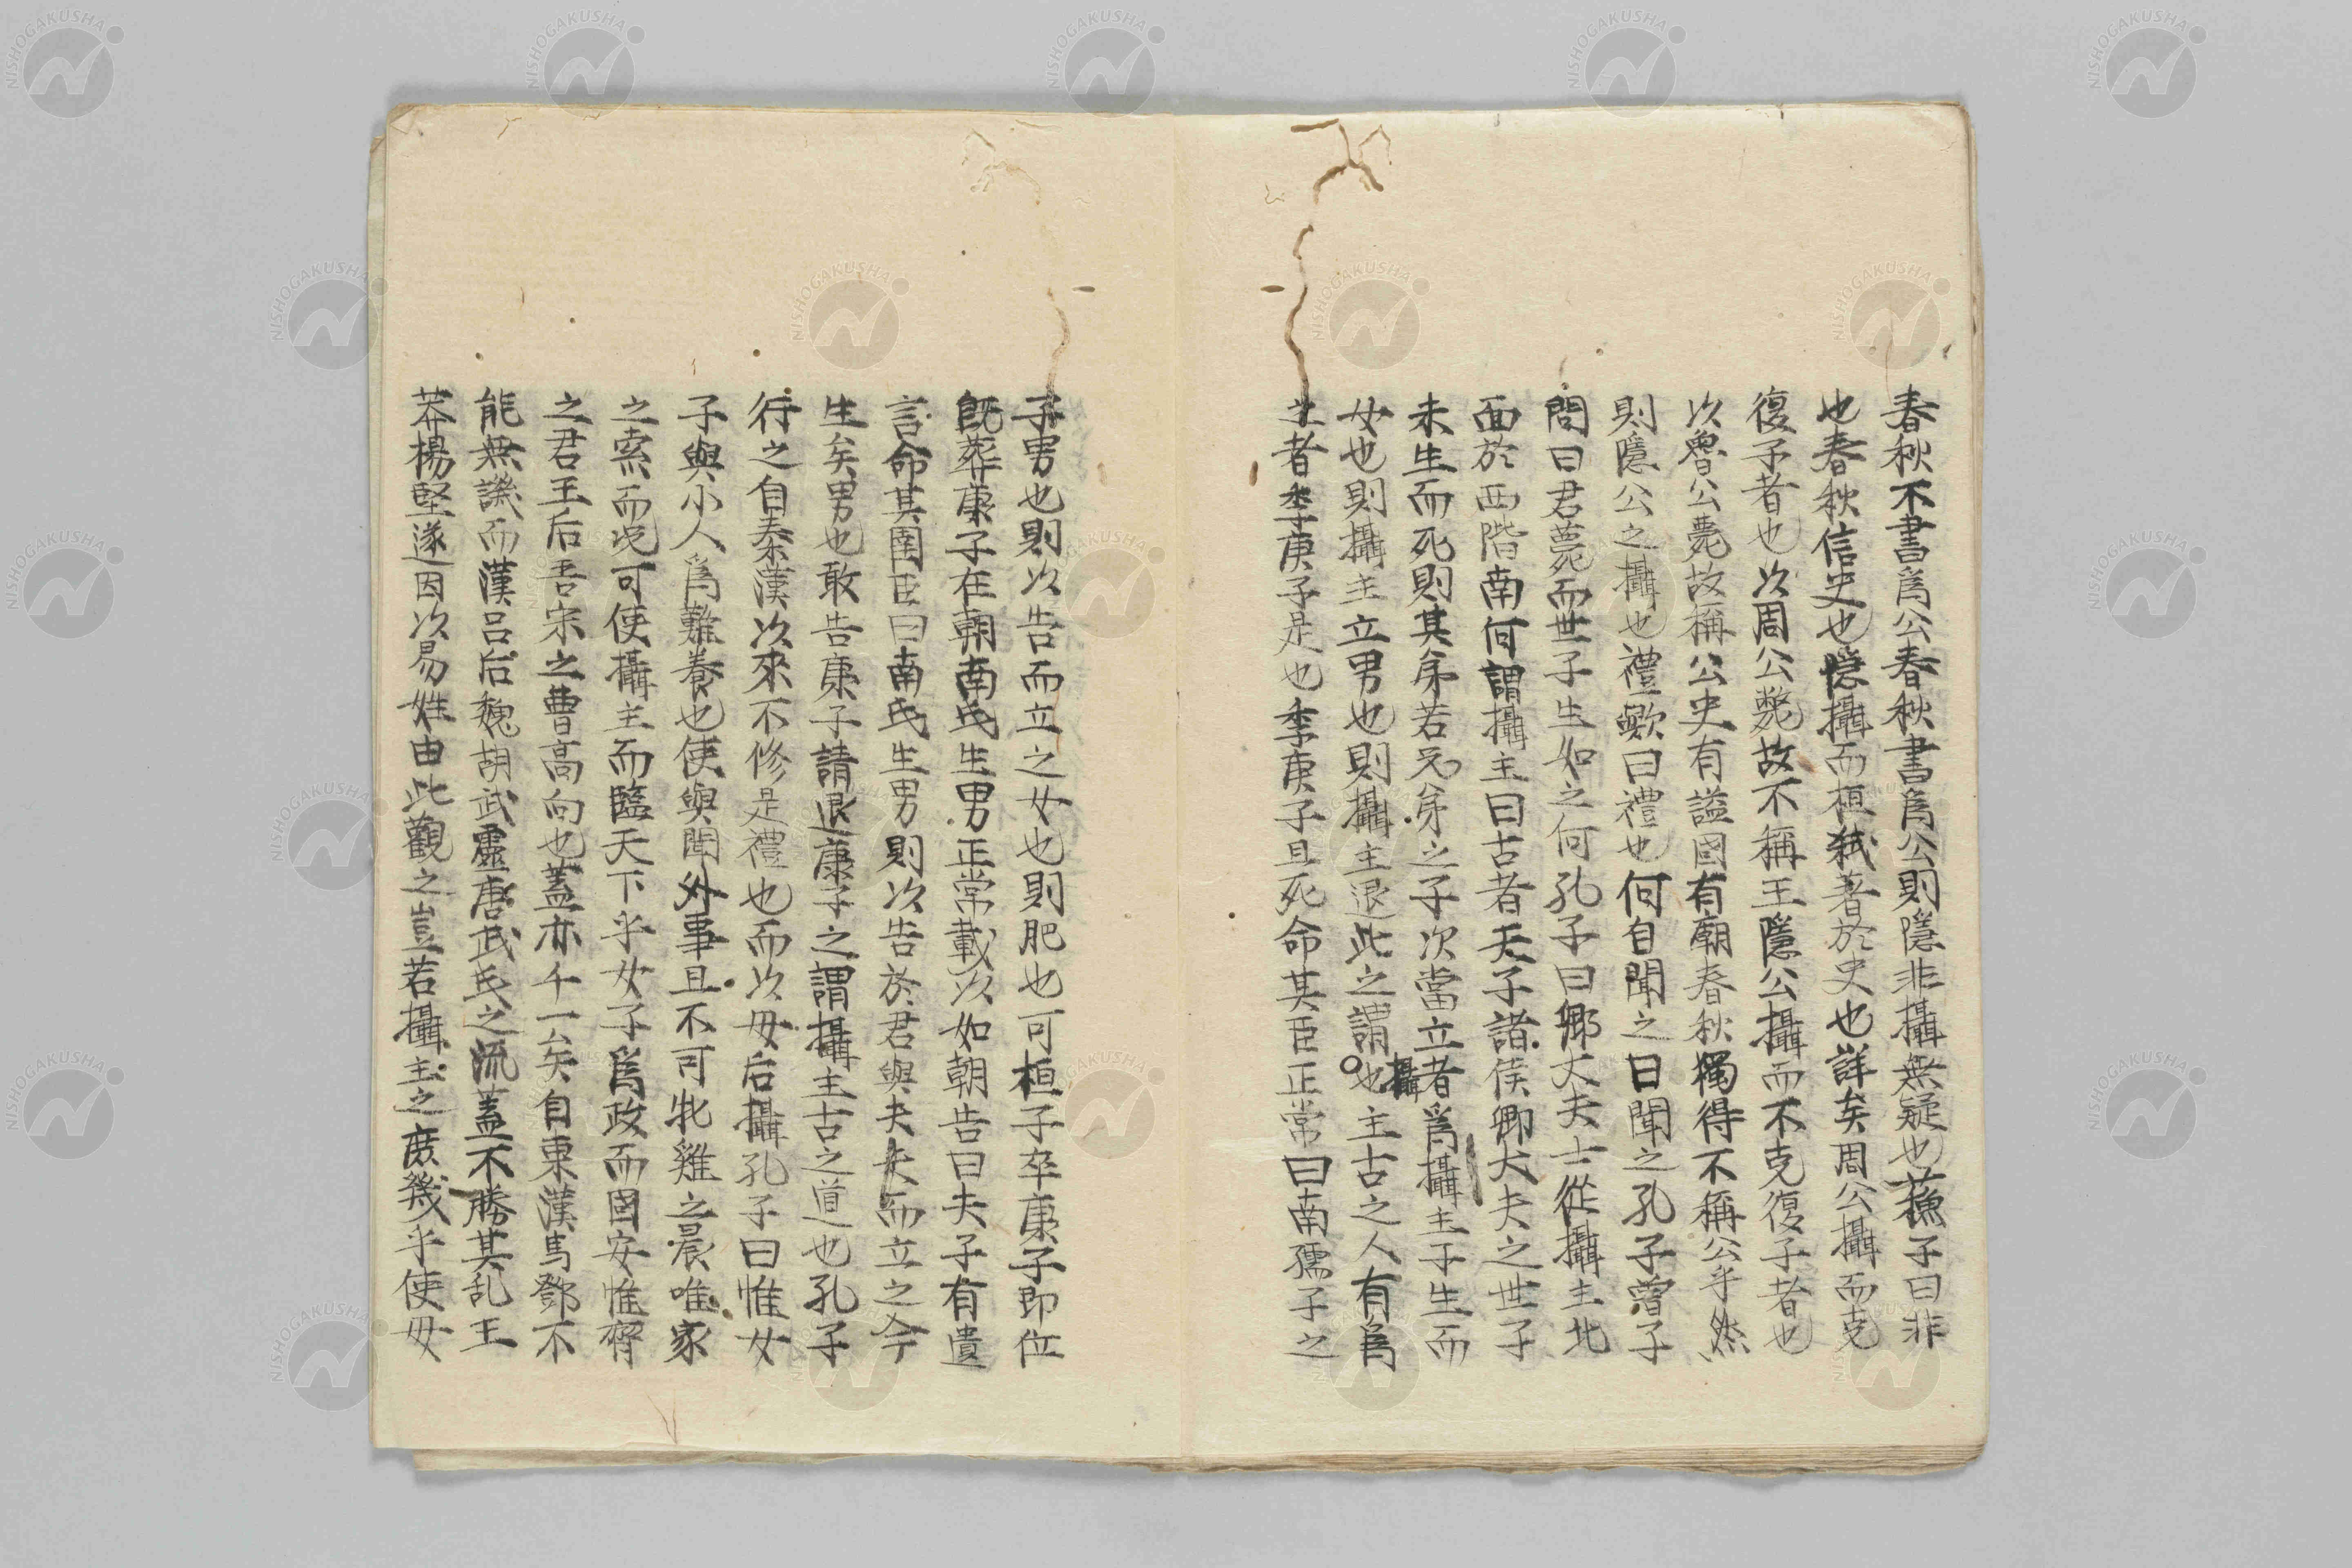 春秋不書為公春秋書為公則隱非攝無疑也蘓子曰非
也春秋信史也隱攝而桓弑著於史也詳矣周公攝而克
復子者也以周公薨故不稱王隱公攝而不克復子者也
以魯公薨故稱公史有謚國有廟春秋獨得不稱公乎然
則隱公之攝也禮歟曰禮也何自聞之曰聞之孔子曽子
問曰君薨而世子生如之何孔子曰卿大夫士從攝主北
面於西階南何謂攝主曰古者天子諸侯卿大夫之世子
未生而死則其弟若兄弟之子次當立者為攝主子生而
女也則攝主立男也則攝主退此之謂攝主古之人有為
之者季康子是也季康子且死命其臣正常曰南孺子之
子男也則以告而立之女也則肥也可桓子卒康子即位
既葬康子在朝南氏生男正常載以如朝告曰夫子有遺
言命其圉臣曰南氏生男則以告於君與大夫而立之今
生矣男也敢告康子請退康子之謂攝主古之道也孔子
行之自秦漢以來不修是禮也而以母后攝孔子曰惟女
子與小人為難養也使與聞外事且不可牝雞之晨唯家
之索而况可使攝主而臨天下乎女子為政而國安惟齊
之君王后吾宋之曹高向也蓋亦千一矣自東漢馬鄧不
能無譏而漢呂后魏胡武靈唐武氏之流蓋不勝其乱王
莽楊堅遂因以易姓由此觀之豈若攝主之庶幾乎使母
NISHOGAKUSHA